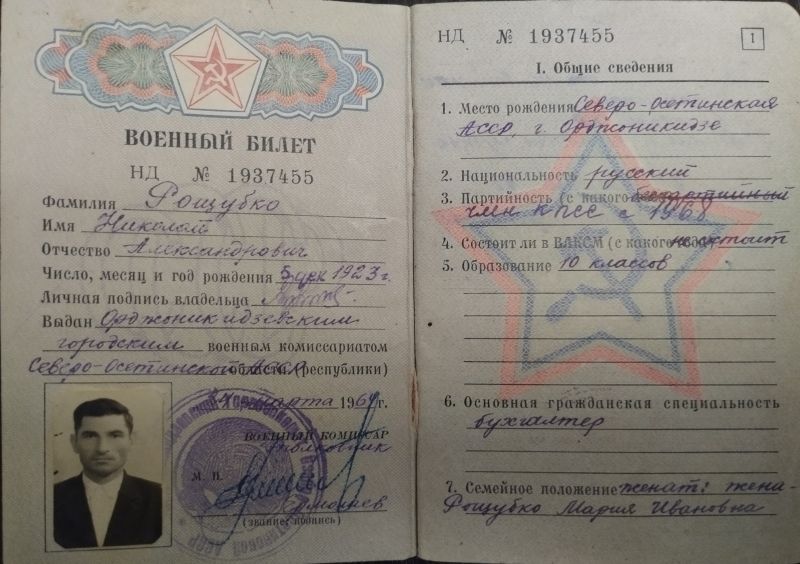 ВОЕННЫЙ БИЛЕТ
НД № 1937455
Фамилия Рощубко
Имя Николай
Отчество Александрович
Число, месяц и год рождения 5 1923 г.
Личная подпись владельца
Выдан Орджоникидзевским
городским военным комиссариатом
Северо-Осетинской АССР области (республики)
марта 1964 г.
ВОЕННЫЙ КОМИССАР
полковник
М. П.
Ермолаев
(звание, подпись)
НД № 1937455
1
I. Общие сведения
1. Место рождения Северо-Осетинская
АССР, г. Орджоникидзе
2. Национальность русский
3. Партийность (с какого беспартийный
член КПСС с 1968
4. Состоит ли в ВЛКСМ (с какого года) не состоит
5. Образование 10 классов
6. Основная гражданская специальность
бухгалтер
7. Семейное положение женат: жена-
Рощубко Мария Ивановна